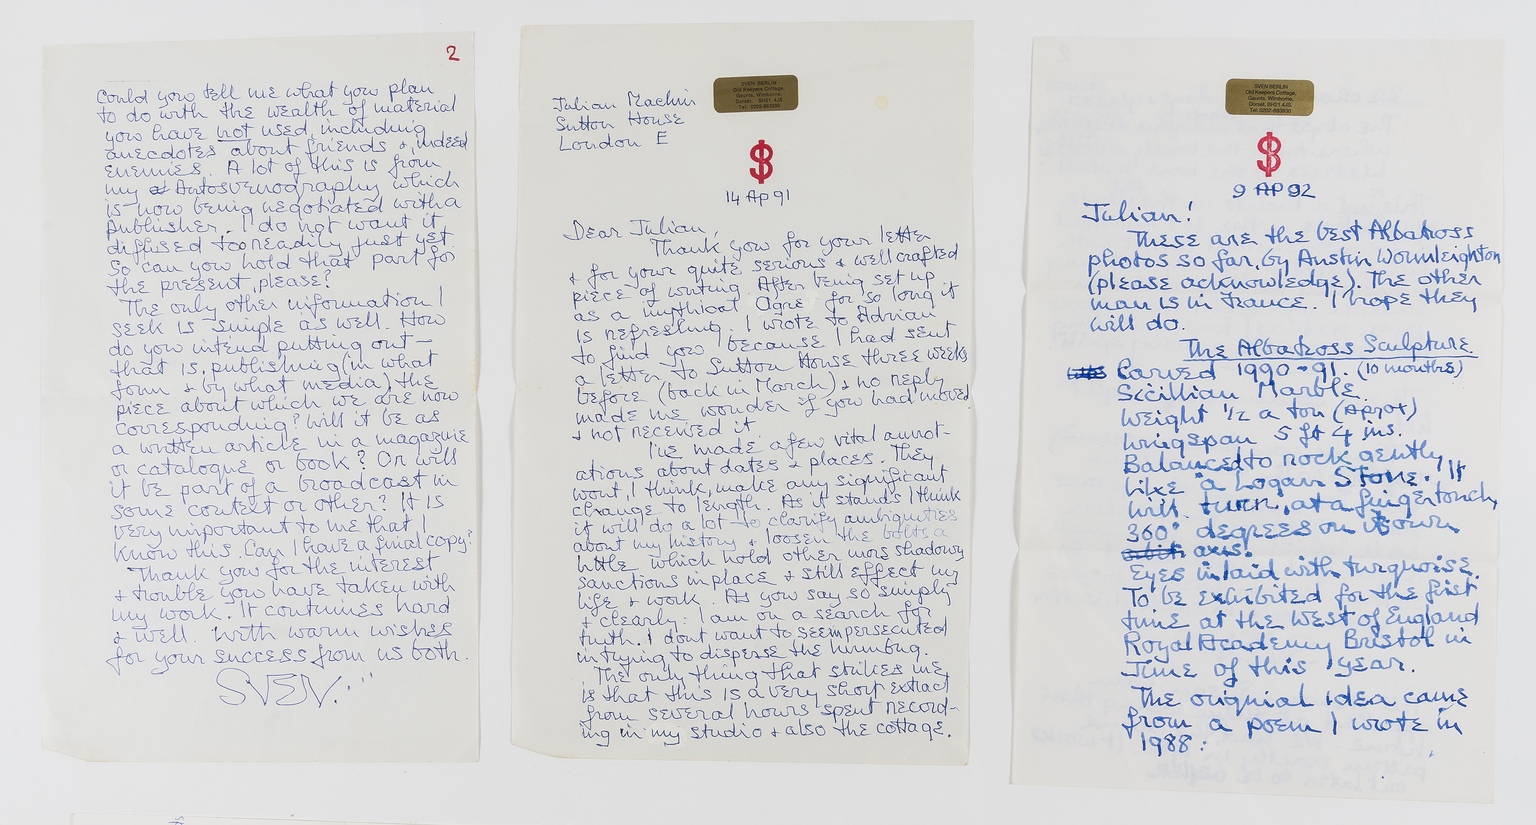 2
Could you tell me what you plan
to do with the wealth of material
you have not used, including
anecdotes about friends & indeed
enemies. A lot of this is from
my Autosvenography which
is now being negotiated with a
publisher. I do not want it
diffused too readily just yet
so can you hold that part for
the present, please?
The only other information I
seek is simple as well. How
do you intend putting out —
that is, publishing (in what
form & by what media) the
piece about which we are now
corresponding? Will it be as
a written article in a magazine
or catalogue or book? Or will
it be part of a broadcast in
some context or other? It is
very important to me that I
know this. Can I have a final copy?
Thank you for the interest
& trouble you have taken with
my work. It continues hard
& well. With warm wishes
for your success from us both.
SVEN.
SVEN BERLIN
Old Keepers Cottage,
Gaunts, Wimborne,
Dorset. BH21 4JS.
Tel. 0202-883930
Julian Machin
Sutton House
London E
14 Ap 91
Dear Julian,
Thank you for your letter
& for your quite serious & well crafted
piece of writing. After being set up
as a mythical Ogre for so long it
is refreshing. I wrote to Adrian
to find you because I had sent
a letter to Sutton House three weeks
before (back in March) & no reply
made me wonder if you had moved
& not received it
I've made a few vital annot-
ations about dates & places. They
wont, I think, make any significant
change to length. As it stands I think
it will do a lot to clarify ambiguities
about my history & loosen the bolts a
little which hold other more shadowy
sanctions in place & still effect my
life & work. As you say so simply
& clearly: I am on a search for
truth. I dont want to seem persecuted
in trying to disperse the humbug.
The only thing that strikes me,
is that this is a very short extract
from several hours spent record-
ing in my studio & also the cottage.
SVEN BERLIN
Old Keepers Cottage,
Gaunts, Wimborne,
Dorset. BH21 4JS.
Tel. 0202-883930
9 AP 92
Julian!
These are the best Albatross
photos so far, by Austin Wormleighton
(please acknowledge). The other
man is in France. I hope they
will do.
The Albatross Sculpture.
Carved 1990-91. (10 months)
Scicillian Marble.
Weight ½ a ton (Aprox)
Wingspan 5 ft 4 ins.
Balanced to rock gently
like a Logan Stone. It
will turn, at a fingertouch,
360° degrees on its own
axis.
Eyes inlaid with turquoise.
To be exhibited for the first
time at the West of England
Royal Academy Bristol in
June of this year.
The original idea came
from a poem I wrote in
1988: